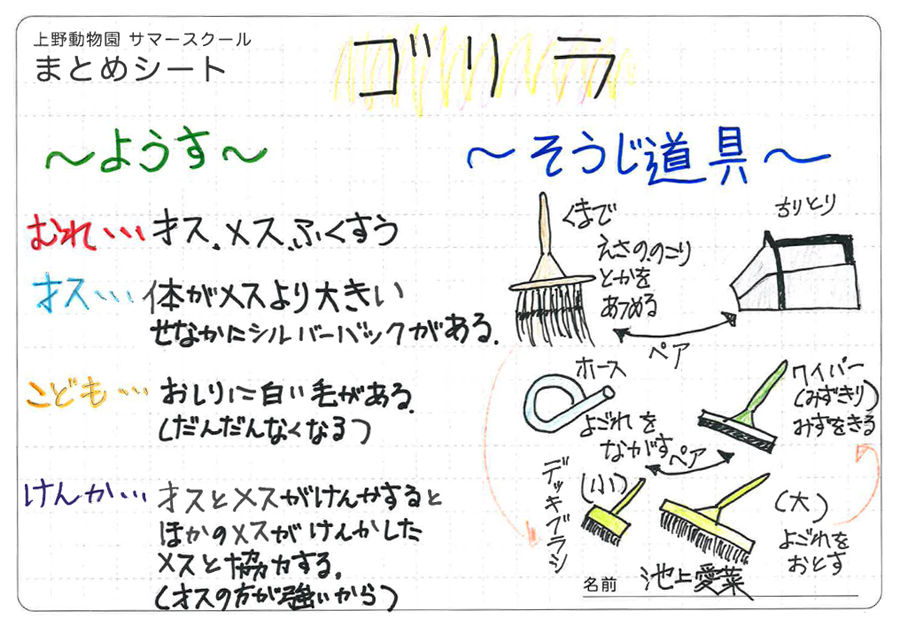 上野動物園 サマースクール
まとめシート
ゴリラ
～ようす～
むれ・・・オス、メス、ふくすう
オス・・・体がメスより大きい
せなかにシルバーバックがある。
こども・・・おしりに白い毛がある。
(だんだんなくなる)
けんか・・・オスとメスがけんかすると
ほかのメスがけんかした
メスと協力する。
(オスの方が強いから)
～そうじ道具～
くまで
えさののこり
とかを
あつめる
ちりとり
ペア
ホース
よごれを
ながす
ワイパー
(みずきり)
みずをきる
ペア
デッキブラシ
(小)
(大)
よごれを
おとす
名前 池上愛菜